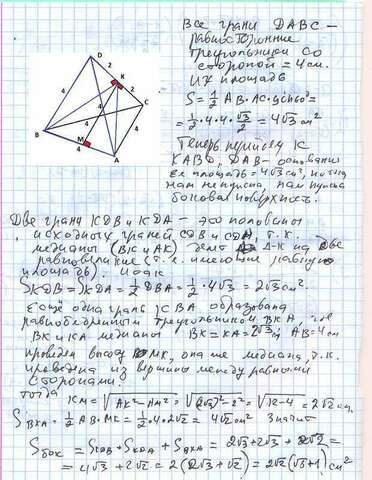 Все грани DABC –
равносторонние
треугольники со
стороной = 4 см.
Их площадь
S = 1/2 AB · AC · sin 60° =
= 1/2 · 4 · 4 · √3/2 = 4√3 см²
Теперь пирамида K
KABD, DAB – основание
Её площадь = 4√3 см², но она
нам не нужна, нам нужна
боковая поверхность.
D
2
K
2
C
4
4
4
4
B
M
4
A
Две грани KDB и KDA – это половины
исходных граней CDB и CDA, т.к.
медианы (BK и AK) делят Δ-к на две
равновеликие (т.е. имеющие равную
площадь). Итак
S KDB = S KDA = 1/2 DBA = 1/2 · 4√3 = 2√3 см².
Ещё одна грань KBA образована
равнобедренным треугольником BKA, где
BK и KA медианы BK = KA = 2√3, AB = 4 см
проведём высоту MK, она же медиана, т.к.
проведена из вершины между равными
сторонами
тогда KM = √(AK² – AM²) = √((2√3)² – 2²) = √(12 – 4) = 2√2 см,
S BKA = 1/2 AB · MK = 1/2 · 4 · 2√2 = 4√2 см² Значит
S бок = S KDB + S KDA + S BKA = 2√3 + 2√3 + 2√2 =
= 4√3 + 2√2 = 2(2√3 + √2) = 2√2(√3 + 1) см²